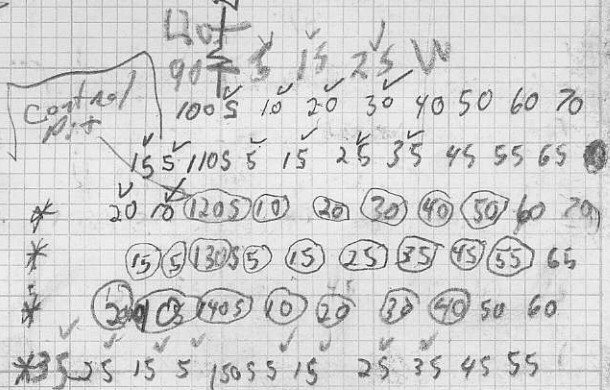 90 5 15 25 W
Control
Pit
100S 10 20 30 40 50 60 70
15 5 110S 5 15 25 35 45 55 65
* 20 10 120S 10 20 30 40 50 60 70
* 15 5 130S 5 15 25 35 45 55 65
* 20 10 140S 10 20 30 40 50 60
* 35 25 15 5 150S 5 15 25 35 45 55